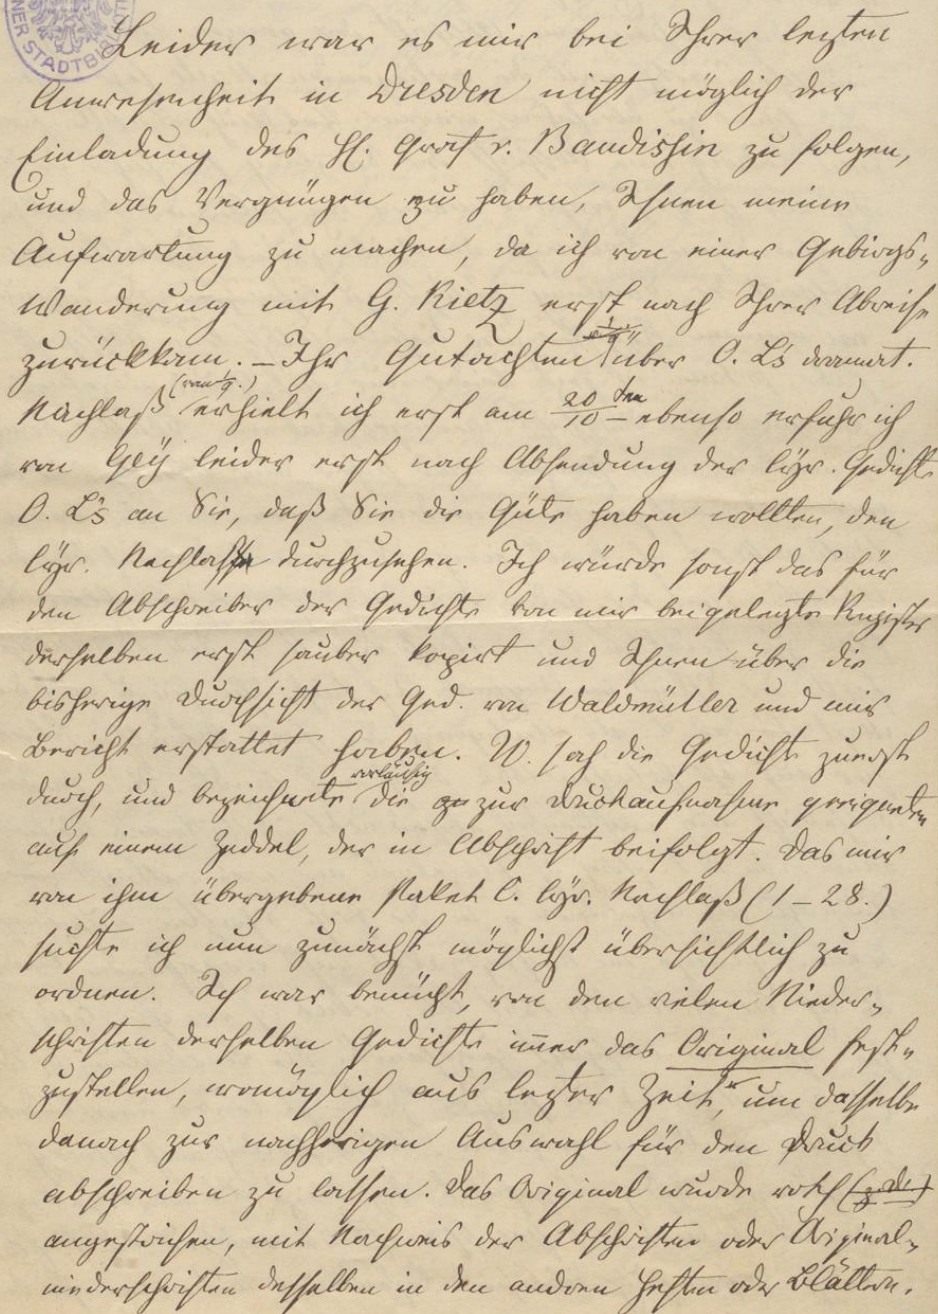 Leider war es mir bei Ihrer lezten
Anwesenheit in Dresden nicht möglich der
Einladung des H. Graf v. Baudissin zu folgen,
und das Vergnügen zu haben, Ihnen meine
Aufwartung zu machen, da ich von einer Gebirgs-
Wanderung mit G. Kietz erst nach Ihrer Abreise
zurückkam. – Ihr Gutachten über O. L's dramat.
Nachlaß (vom 1/9.) erhielt ich erst am 20/10 ten – ebenso erfuhr ich
von Gey leider erst nach Absendung der lyr. Gedichte
O. L's an Sie, daß Sie die Güte haben wollten, den
lyr. Nachlaß durchzusehen. Ich würde sonst das für
den Abschreiber der Gedichte von mir beigelegte Register
derselben erst sauber kopirt und Ihnen über die
bisherige Durchsicht der Ged. von Waldmüller und mir
Bericht erstattet haben. W. sah die Gedichte zuerst
durch, und bezeichnete vorläufig die zur Druckaufnahme geeigneten
auf einem Zeddel, der in Abschrift beifolgt. Das mir
von ihm übergebene Paket C. lyr. Nachlaß (1–28.)
suchte ich nun zunächst möglichst übersichtlich zu
ordnen. Ich war bemüht, von den vielen Nieder-
schriften derselben Gedichte immer das Original fest-
zustellen, womöglich aus lezter Zeit, um dasselbe
danach zur nachherigen Auswahl für den Druck
abschreiben zu lassen. Das Original wurde roth
angestrichen, mit Nachweis der Abschriften oder Original-
niederschriften desselben in den andren Heften oder Blättern.
STADTBI